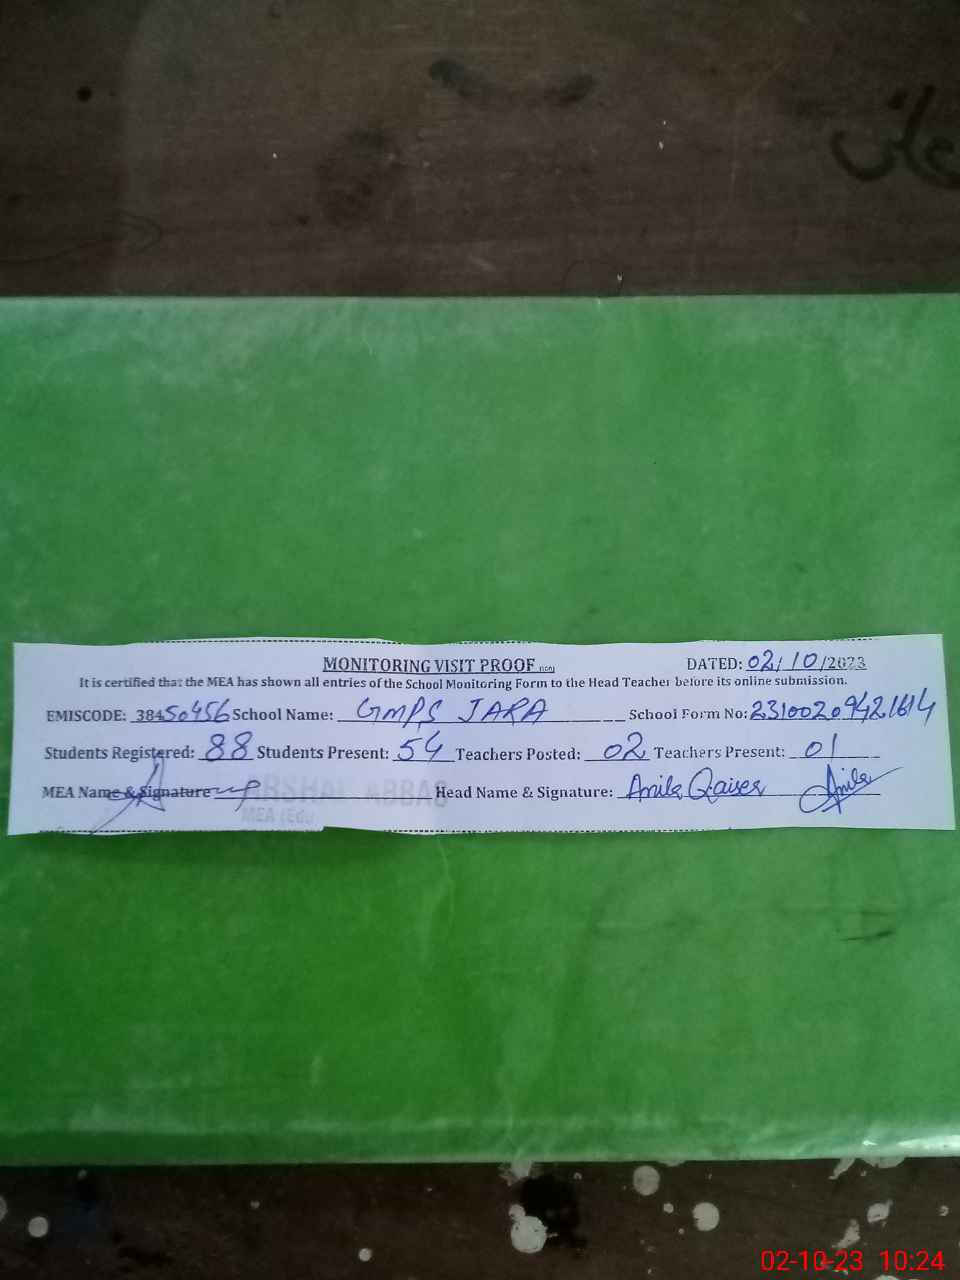 MONITORING VISIT PROOF
DATED: 02/10/2023
It is certified that the MEA has shown all entries of the School Monitoring Form to the Head Teacher before its online submission.
EMISCODE: 38450456 School Name: GMPS JARA School Form No: 23100209421614
Students Registered: 88 Students Present: 54 Teachers Posted: 02 Teachers Present: 01
MEA Name & Signature ARSHAD ABBAS Head Name & Signature: Anila Qaiser Anila
MEA (Edu
02-10-23 10:24